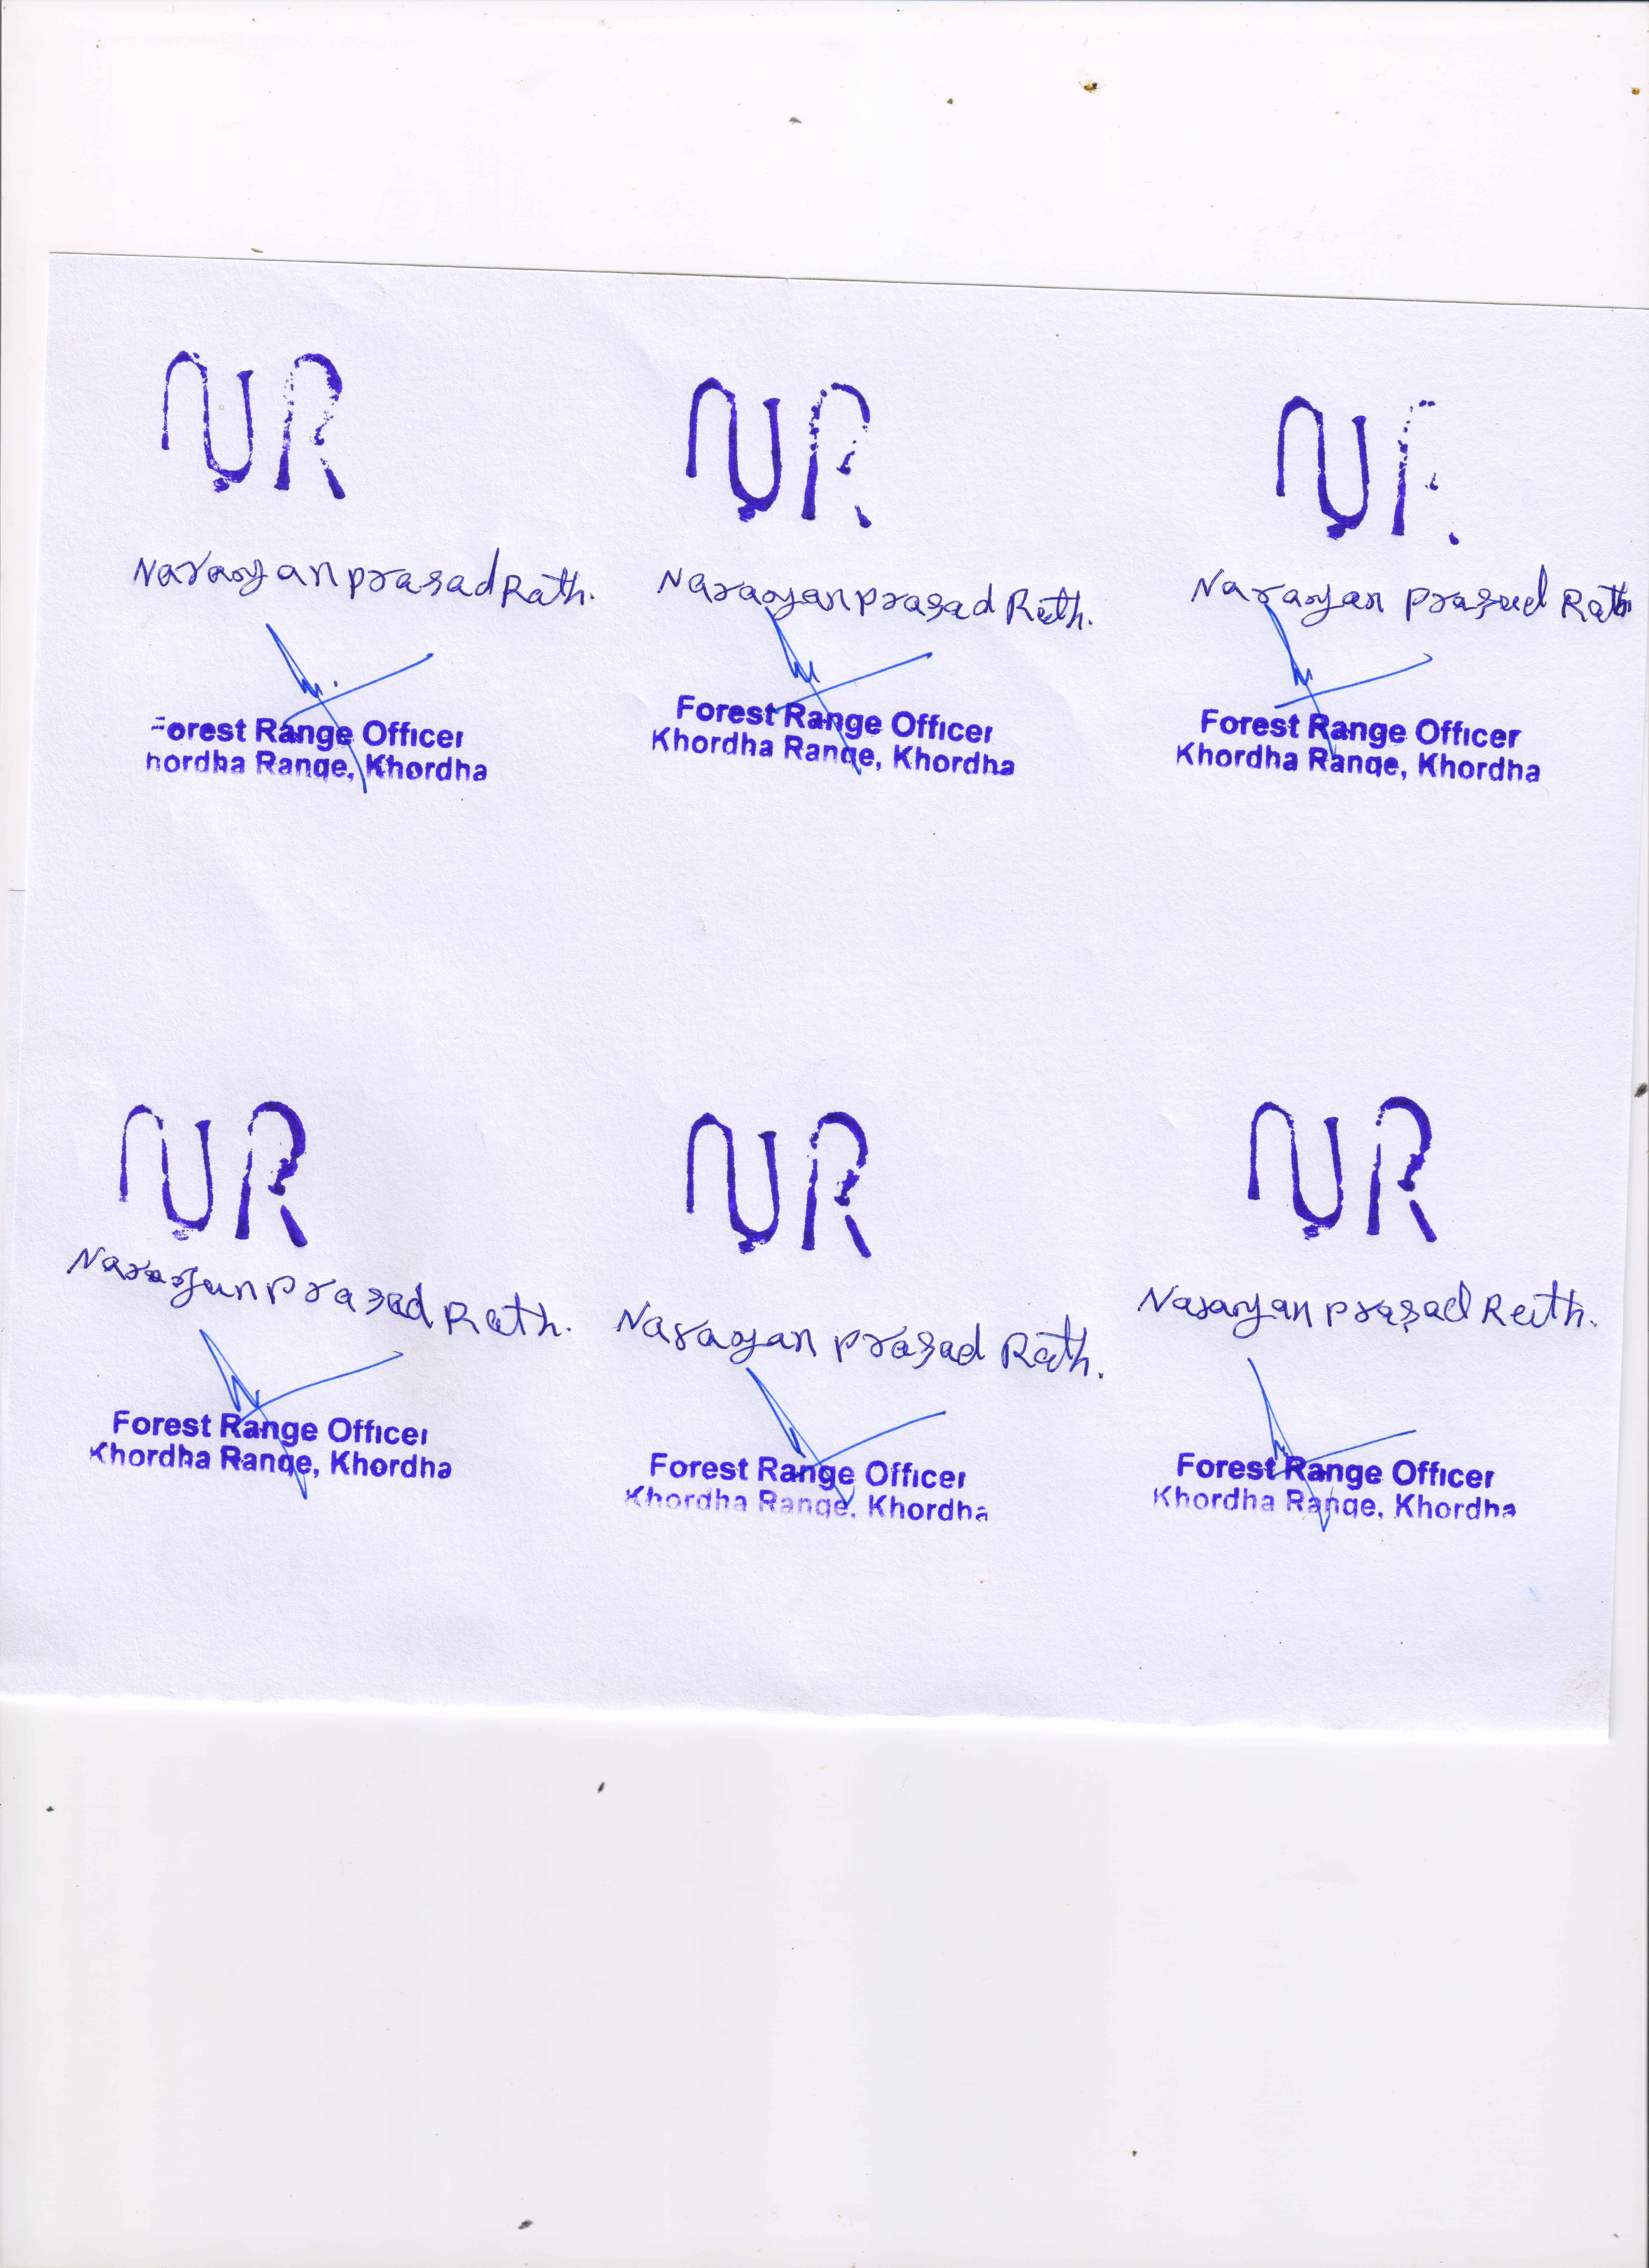 NR NR NR
Narayan prasad Rath. Narayan prasad Rath. Narayan prasad Rath
Forest Range Officer Forest Range Officer Forest Range Officer
Khordha Range, Khordha Khordha Range, Khordha Khordha Range, Khordha
NR NR NR
Narayan prasad Rath. Narayan prasad Rath. Narayan prasad Rath.
Forest Range Officer Forest Range Officer Forest Range Officer
Khordha Range, Khordha Khordha Range, Khordha Khordha Range, Khordha